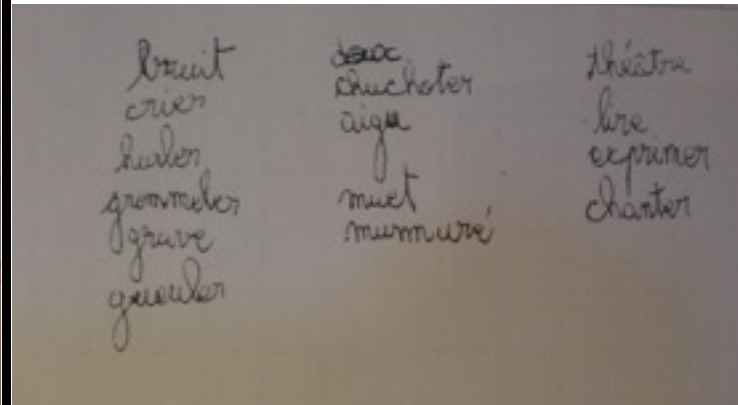 bruit
crier
hurler
grommeler
grave
gueuler
chuchoter
aigu
muet
murmuré
théâtre
lire
exprimer
chanter